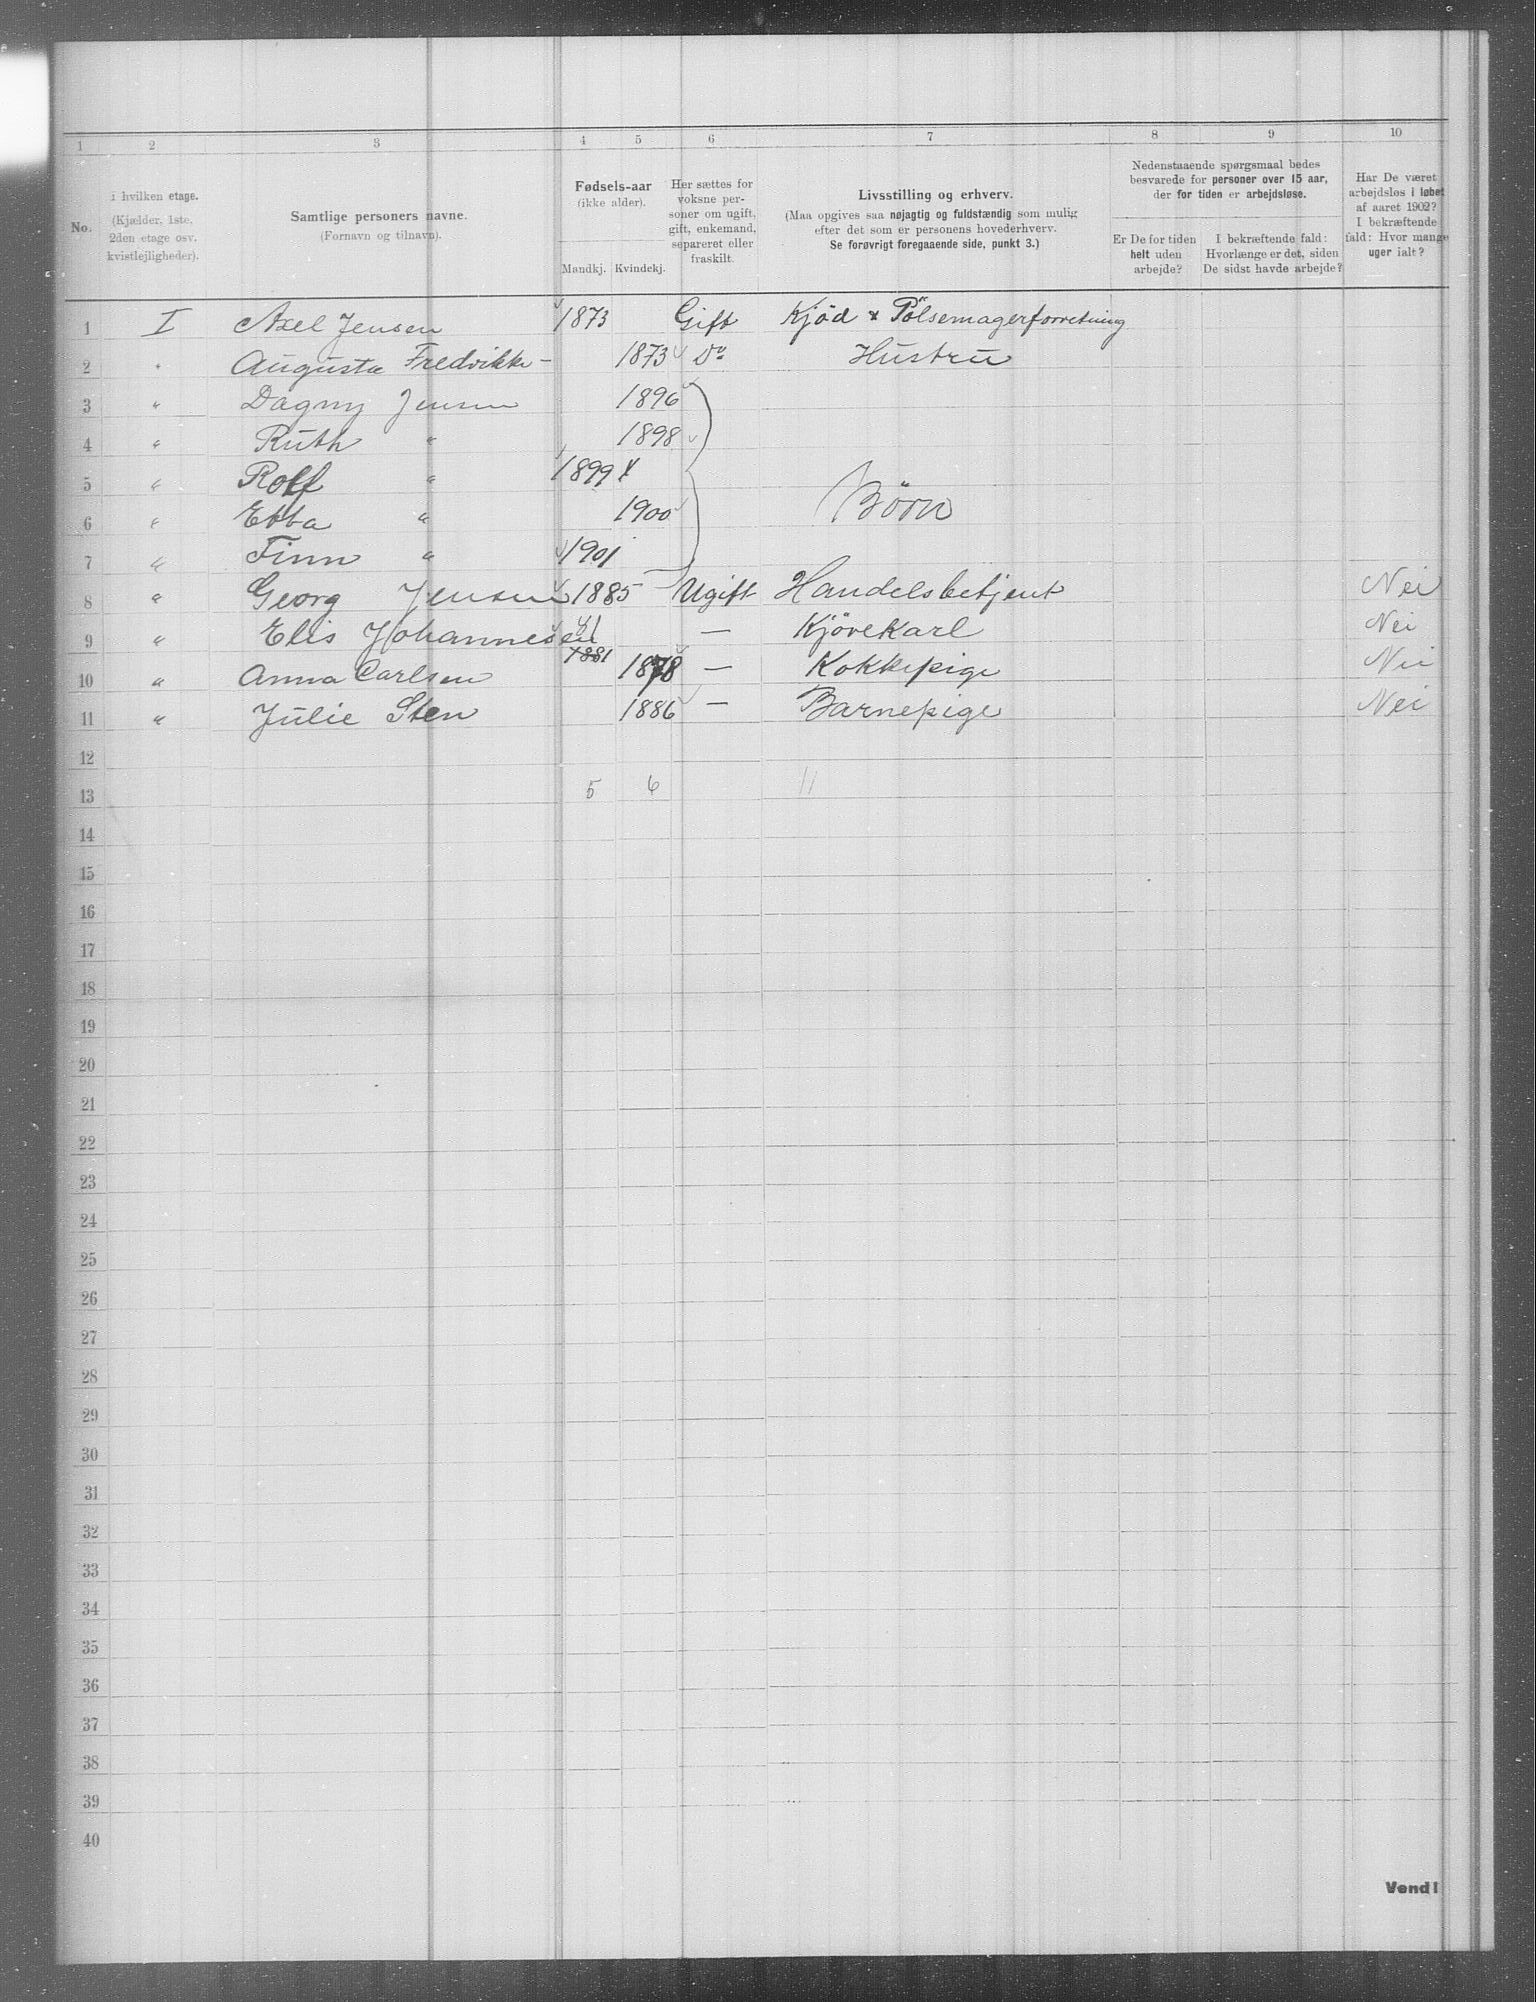 1 2 3 4 5 6 7 8 9 10
No.
i hvilken etage.
(Kjælder, 1ste, 2den etage osv. kvistlejligheder).
Samtlige personers navne.
(Fornavn og tilnavn).
Fødsels-aar
(ikke alder).
Mandkj. Kvindekj.
Her sættes for voksne per-
soner om ugift, gift, enkemand, separeret eller fraskilt.
Livsstilling og erhverv.
(Maa opgives saa nøjagtig og fuldstændig som mulig
efter det som er personens hovederhverv.
Se forøvrigt foregaaende side, punkt 3.)
Nedenstaaende spørgsmaal bedes
besvarede for personer over 15 aar,
der for tiden er arbejdsløse.
Er De for tiden
helt uden
arbejde?
I bekræftende fald:
Hvorlænge er det, siden
De sidst havde arbejde?
Har De været
arbejdsløs i løbet
af aaret 1902?
I bekræftende
fald: Hvor mange
uger ialt?
1 I Axel Jensen 1873 Gift Kjöd & Pölsemagerforretning
2 " Augusta Fredrikke - 1873 Do Hustru
3 " Dagny Jensen 1896
4 " Ruth " 1898
5 " Rolf " 1899
6 " Ebba " 1900 Börn
7 " Finn " 1901
8 " Georg Jensen 1885 Ugift Handelsbetjent Nei
9 " Elis Johannesen 1881 — Kjørekarl Nei
10 " Anna Carlsen 1878 — Kokkepige Nei
11 " Julie Sten 1886 — Barnepige Nei
12
13 5 6 11
14
15
16
17
18
19
20
21
22
23
24
25
26
27
28
29
30
31
32
33
34
35
36
37
38
39
40
Vend!